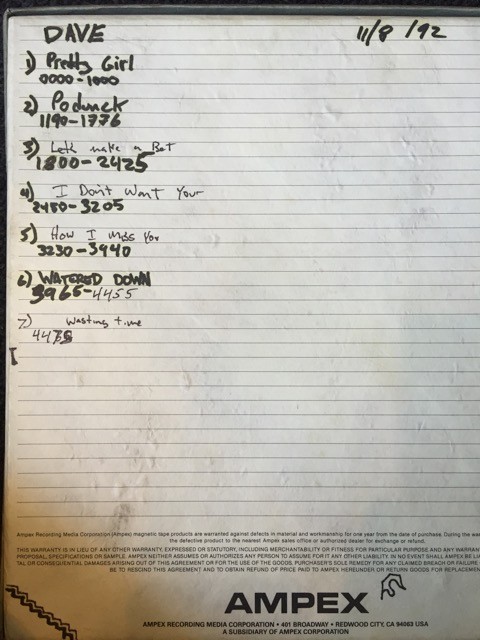 DAVE 11/8/92
1) Pretty Girl
0000-1000
2) Podunck
1190-1776
3) Let's make a Bet
1800-2425
4) I Don't Want Your
2450-3205
5) How I Miss You
3230-3940
6) WATERED DOWN
3965-4455
7) wasting time
4475
Ampex Recording Media Corporation (Ampex) magnetic tape products are warranted against defects in material and workmanship for one year from the date of purchase. During the
the defective product to the nearest Ampex sales office or authorized dealer for exchange or refund.
THIS WARRANTY IS IN LIEU OF ANY OTHER WARRANTY, EXPRESSED OR STATUTORY, INCLUDING MERCHANTABILITY OR FITNESS FOR PARTICULAR PURPOSE AND ANY
PROPOSAL, SPECIFICATIONS OR SAMPLE. AMPEX NEITHER ASSUMES OR AUTHORIZES ANY PERSON TO ASSUME FOR IT ANY OTHER LIABILITY. IN NO EVENT SHALL AMPEX BE
TAL OR CONSEQUENTIAL DAMAGES ARISING OUT OF THIS AGREEMENT OR FOR THE USE OF THE GOODS. PURCHASER'S SOLE REMEDY FOR ANY CLAIMED BREACH OR FAILURE
BE TO RESCIND THIS AGREEMENT AND TO OBTAIN REFUND OF PRICE PAID TO AMPEX HEREUNDER OR RETURN GOODS FOR
AMPEX
AMPEX RECORDING MEDIA CORPORATION • 401 BROADWAY • REDWOOD CITY, CA 94063 USA
A SUBSIDIARY OF AMPEX CORPORATION